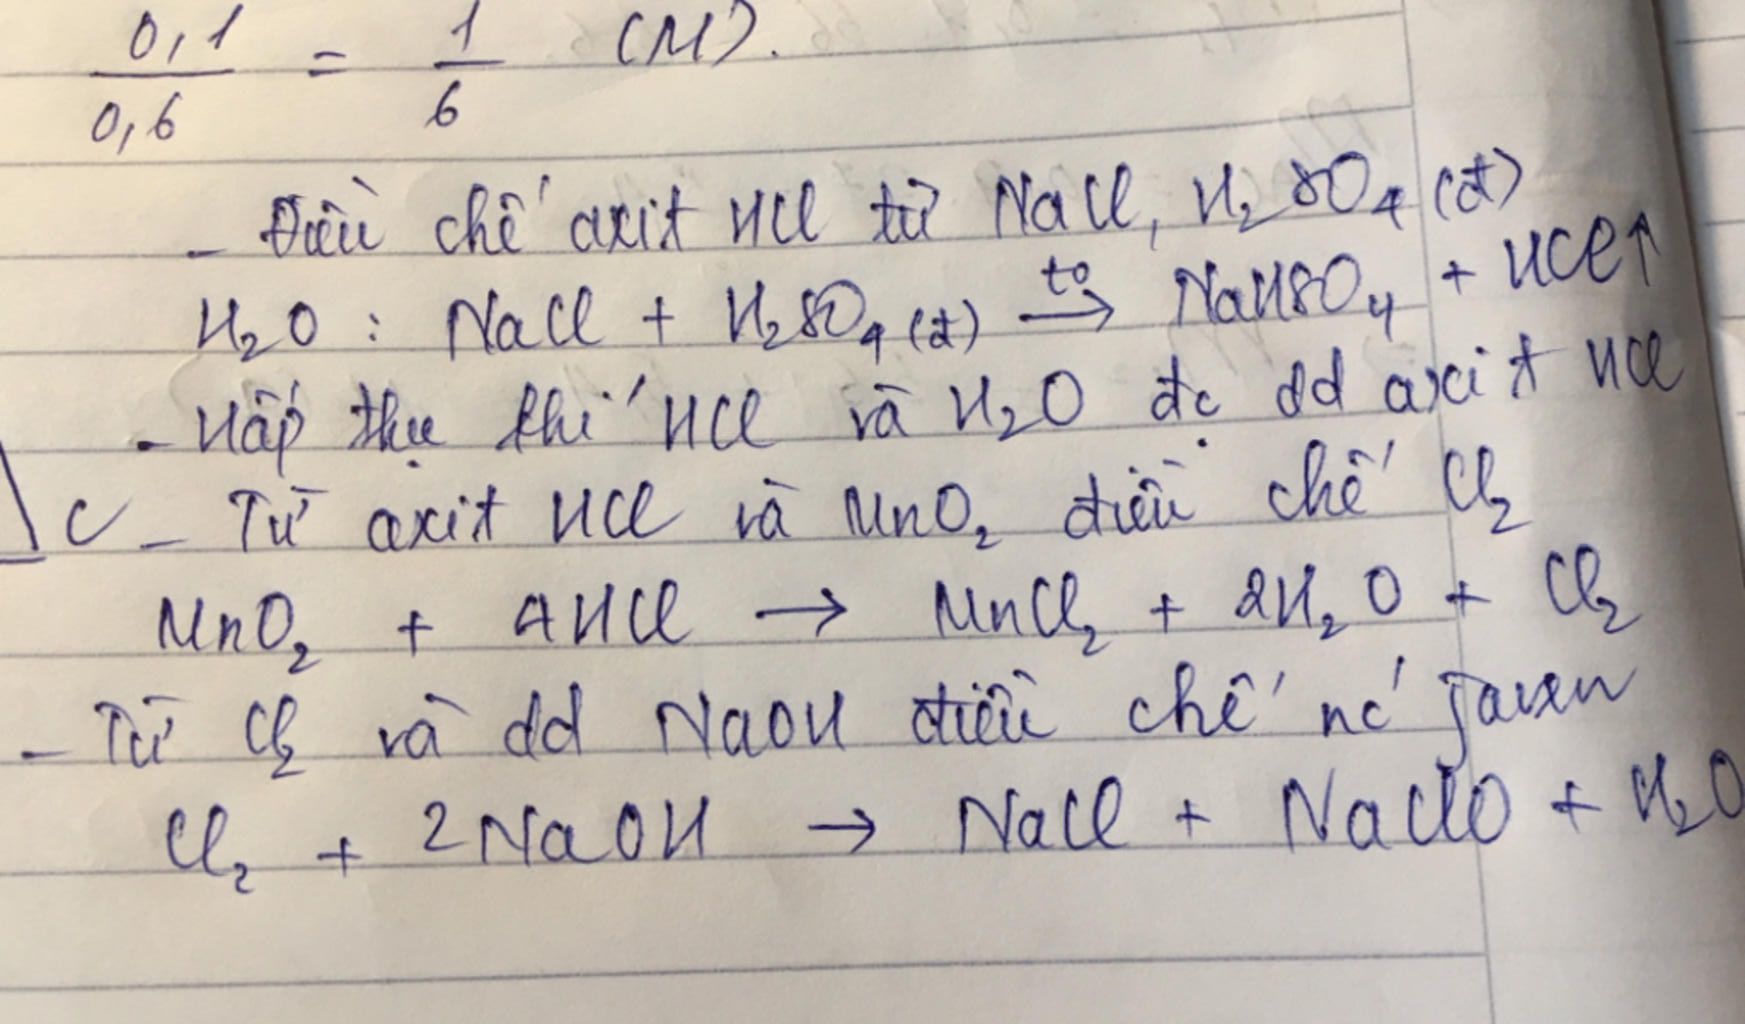 0,1/0,6 = 1/6 (M).
- Điều chế axit HCl từ NaCl, H₂SO₄ (đ)
H₂O : NaCl + H₂SO₄ (đ) —t⁰→ NaHSO₄ + HCl↑
- Hấp thụ khí HCl và H₂O đc dd axit HCl
C - Từ axit HCl và MnO₂ điều chế Cl₂
MnO₂ + 4HCl → MnCl₂ + 2H₂O + Cl₂
- Từ Cl₂ và dd NaOH điều chế nc´ javen
Cl₂ + 2NaOH → NaCl + NaClO + H₂O